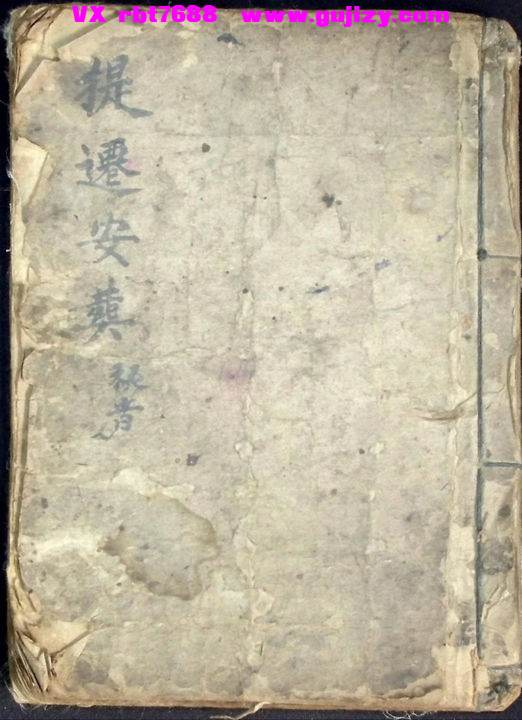 VX rbt7688 www.gujizy.com
提遷安葬